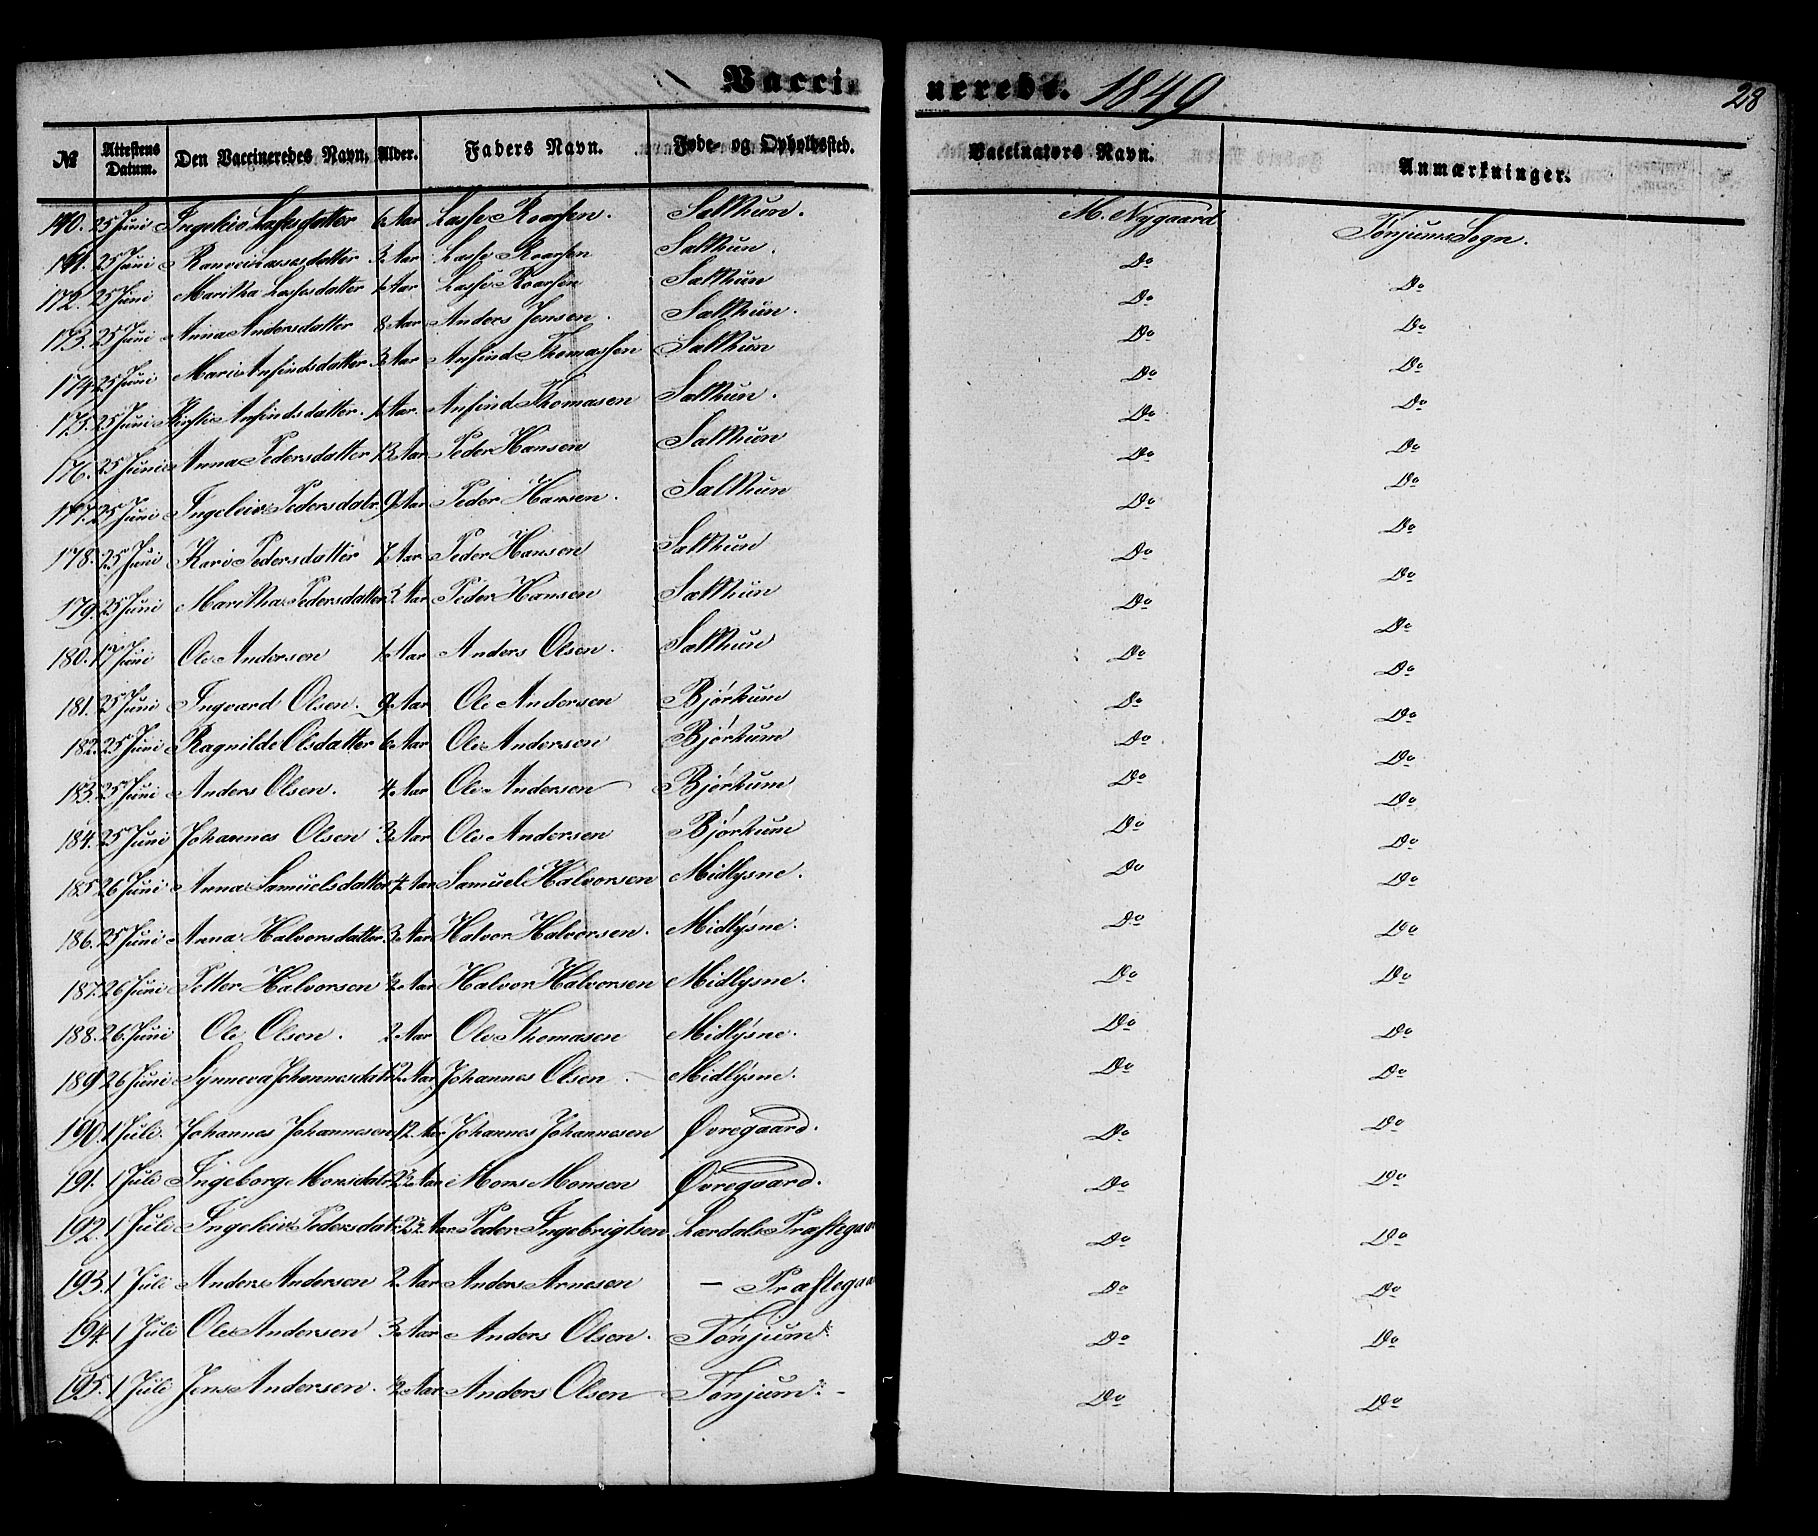 Vaccinerede. 1849
28
№ Attestens Datum. Den Vaccineredes Navn. Alder. Faders Navn. Føde- og Opholdssted. Vaccinators Navn. Anmærkninger.
25 Juni Ingeleiv Lassesdatter 6 Aar Lasse Roarsen. Sælthun. M. Nygaard Tønjums Sogn.
25 Juni Lassesdatter 3 Aar Lasse Roarsen Sælthun. Do
172. 25 Juni Maritha Lassesdatter 1 Aar Lasse Roarsen Sælthun Do Do
173. 25 Juni Anna Andersdatter 8 Aar Anders Jensen. Sælthun. Do Do
174 25 Juni Mari Anfindsdatter 3 Aar Anfind Thomassen Sælthun Do Do
175. 25 Juni Anfindsdatter. 1 Aar. Anfind Thomasen Sælthun. Do Do
176. 25 Juni Anna Pedersdatter 13 Aar Peder Hansen Sælthun Do Do
177. 25 Juni Ingeleiv Pedersdatr. 9 Aar Peder Hansen. Sælthun Do Do
178. 25 Juni Kari Pedersdatter 7 Aar Peder Hansen Sælthun Do Do
179. 25 Juni Maritha Pedersdatter 3 Aar Peder Hansen Sælthun Do Do
180. 17 Juni Ole Andersen 1 Aar Anders Olsen. Sælthun Do Do
181. 25 Juni Ingvard Olsen. 9 Aar Ole Andersen Bjørkum Do Do
182. 25 Juni Ragnilde Olsdatter 6 Aar Ole Andersen Bjørkum Do Do
183. 25 Juni Anders Olsen. 4 Aar Ole Andersen Bjørkum Do Do
184. 25 Juni Johannes Olsen 3 Aar Ole Andersen Bjørkum Do Do
185 26 Juni Anna Samuelsdatter 4 Aar Samuel Halvorsen Midlysne. Do Do
186. 25 Juni Anna Halvorsdatter. 3 Aar Halvor Halvorsen. Midlysne. Do Do
187. 26 Juni Petter Halvorsen ½ Aar Halvor Halvorsen Midlysne. Do Do
188. 26 Juni Ole Olsen. 2 Aar Ole Thomasen Midlysne. Do Do
189 26 Juni Synneva Johannesdatr 12 Aar Johannes Olsen. Midlysne. Do Do
190. 1 Juli. Johannes Johannesen 12 Aar Johannes Johannesen Øvregaard. Do Do
191. 1 Juli Ingeborg Monsdatr 2½ Aar Mons Monsen Øvregaard. Do Do
192. 1 Juli Ingeleiv Pedersdatr Aar Peder Ingebrigtsen Lærdals Præstegaar Do Do
193. 1 Juli Anders Andersen 2 Aar Anders Arnesen — Præstegaa Do Do
194. 1 Juli Ole Andersen 3 Aar Anders Olsen. Tønjum Do Do
195. 1 Juli Jens Andersen. ½ Aar Anders Olsen Tønjum. Do Do